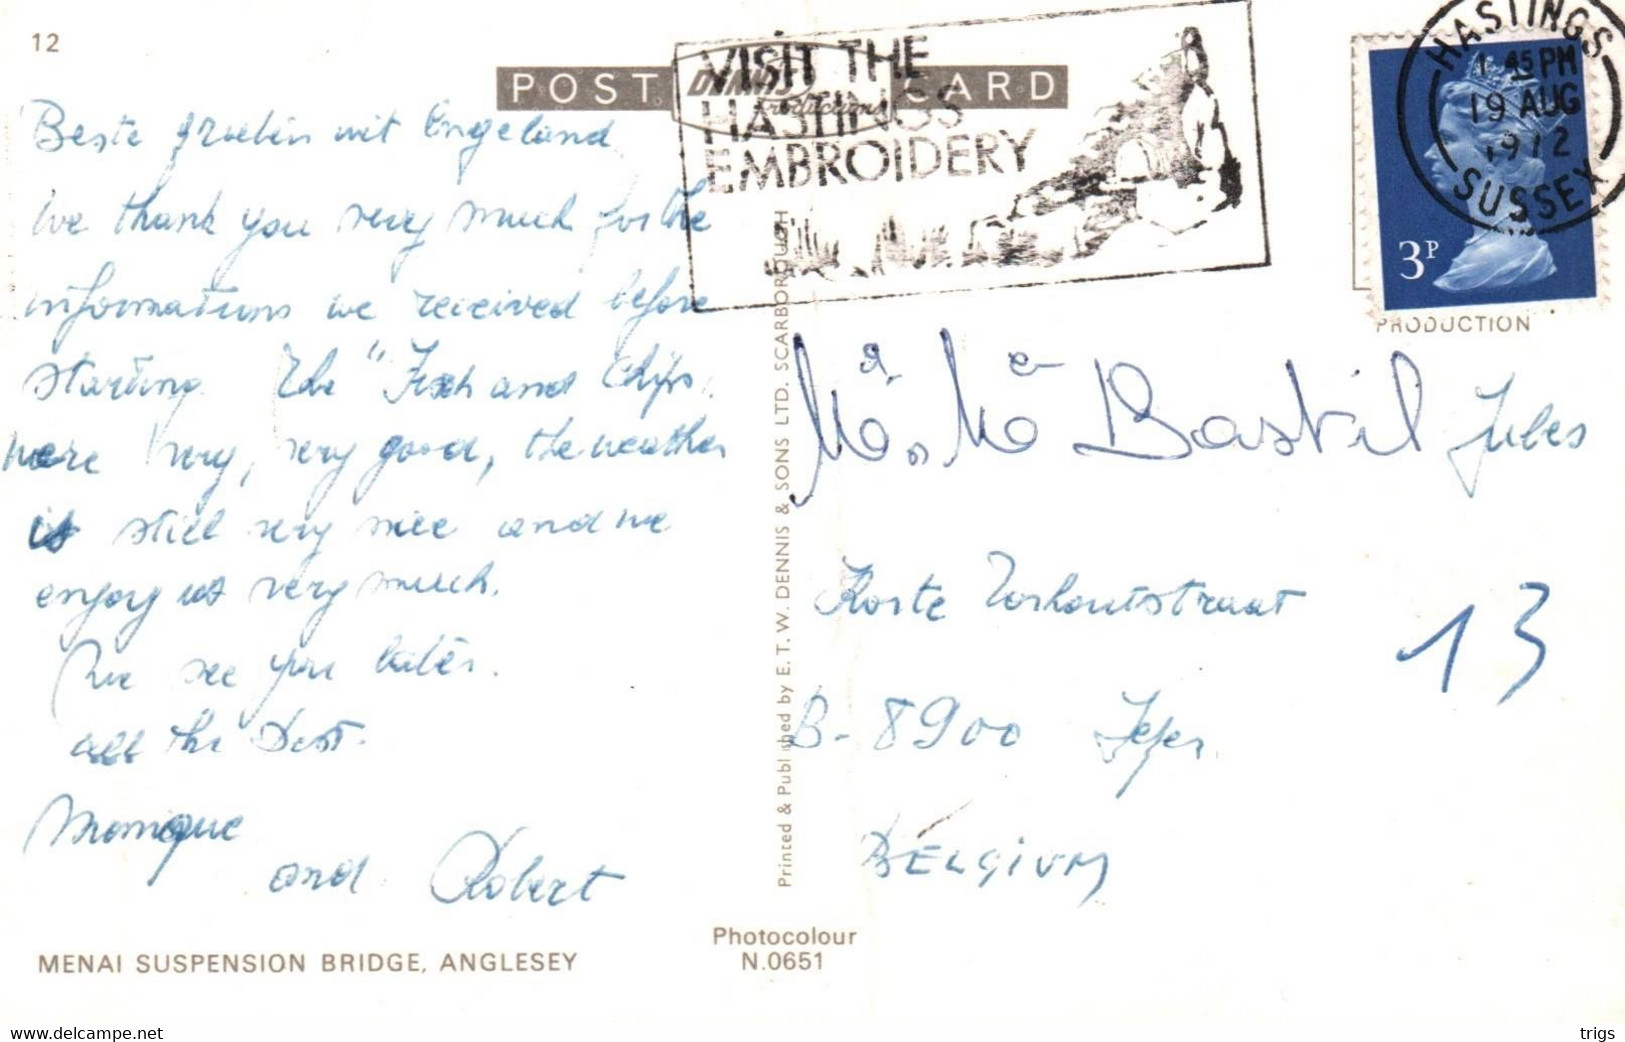 12
POST CARD
DENNIS
Productions
VISIT THE
HASTINGS
EMBROIDERY
HASTINGS
1 45 PM
19 AUG
1972
SUSSEX
3P
PRODUCTION
Beste groeten uit Engeland
We thank you very much for the
informations we received before
starting. The "Fish and Chips"
were very, very good, the weather
is still very nice and we
enjoy us very much.
We see you later.
all the best.
Monique
and Robert
Mr & Me Bastil Jules
Korte Torhoutstraat 13
B-8900 Ieper
BELGIUM
MENAI SUSPENSION BRIDGE, ANGLESEY
Photocolour
N.0651
Printed & Published by E. T. W. DENNIS & SONS LTD. SCARBOROUGH
www.delcampe.net
trigs